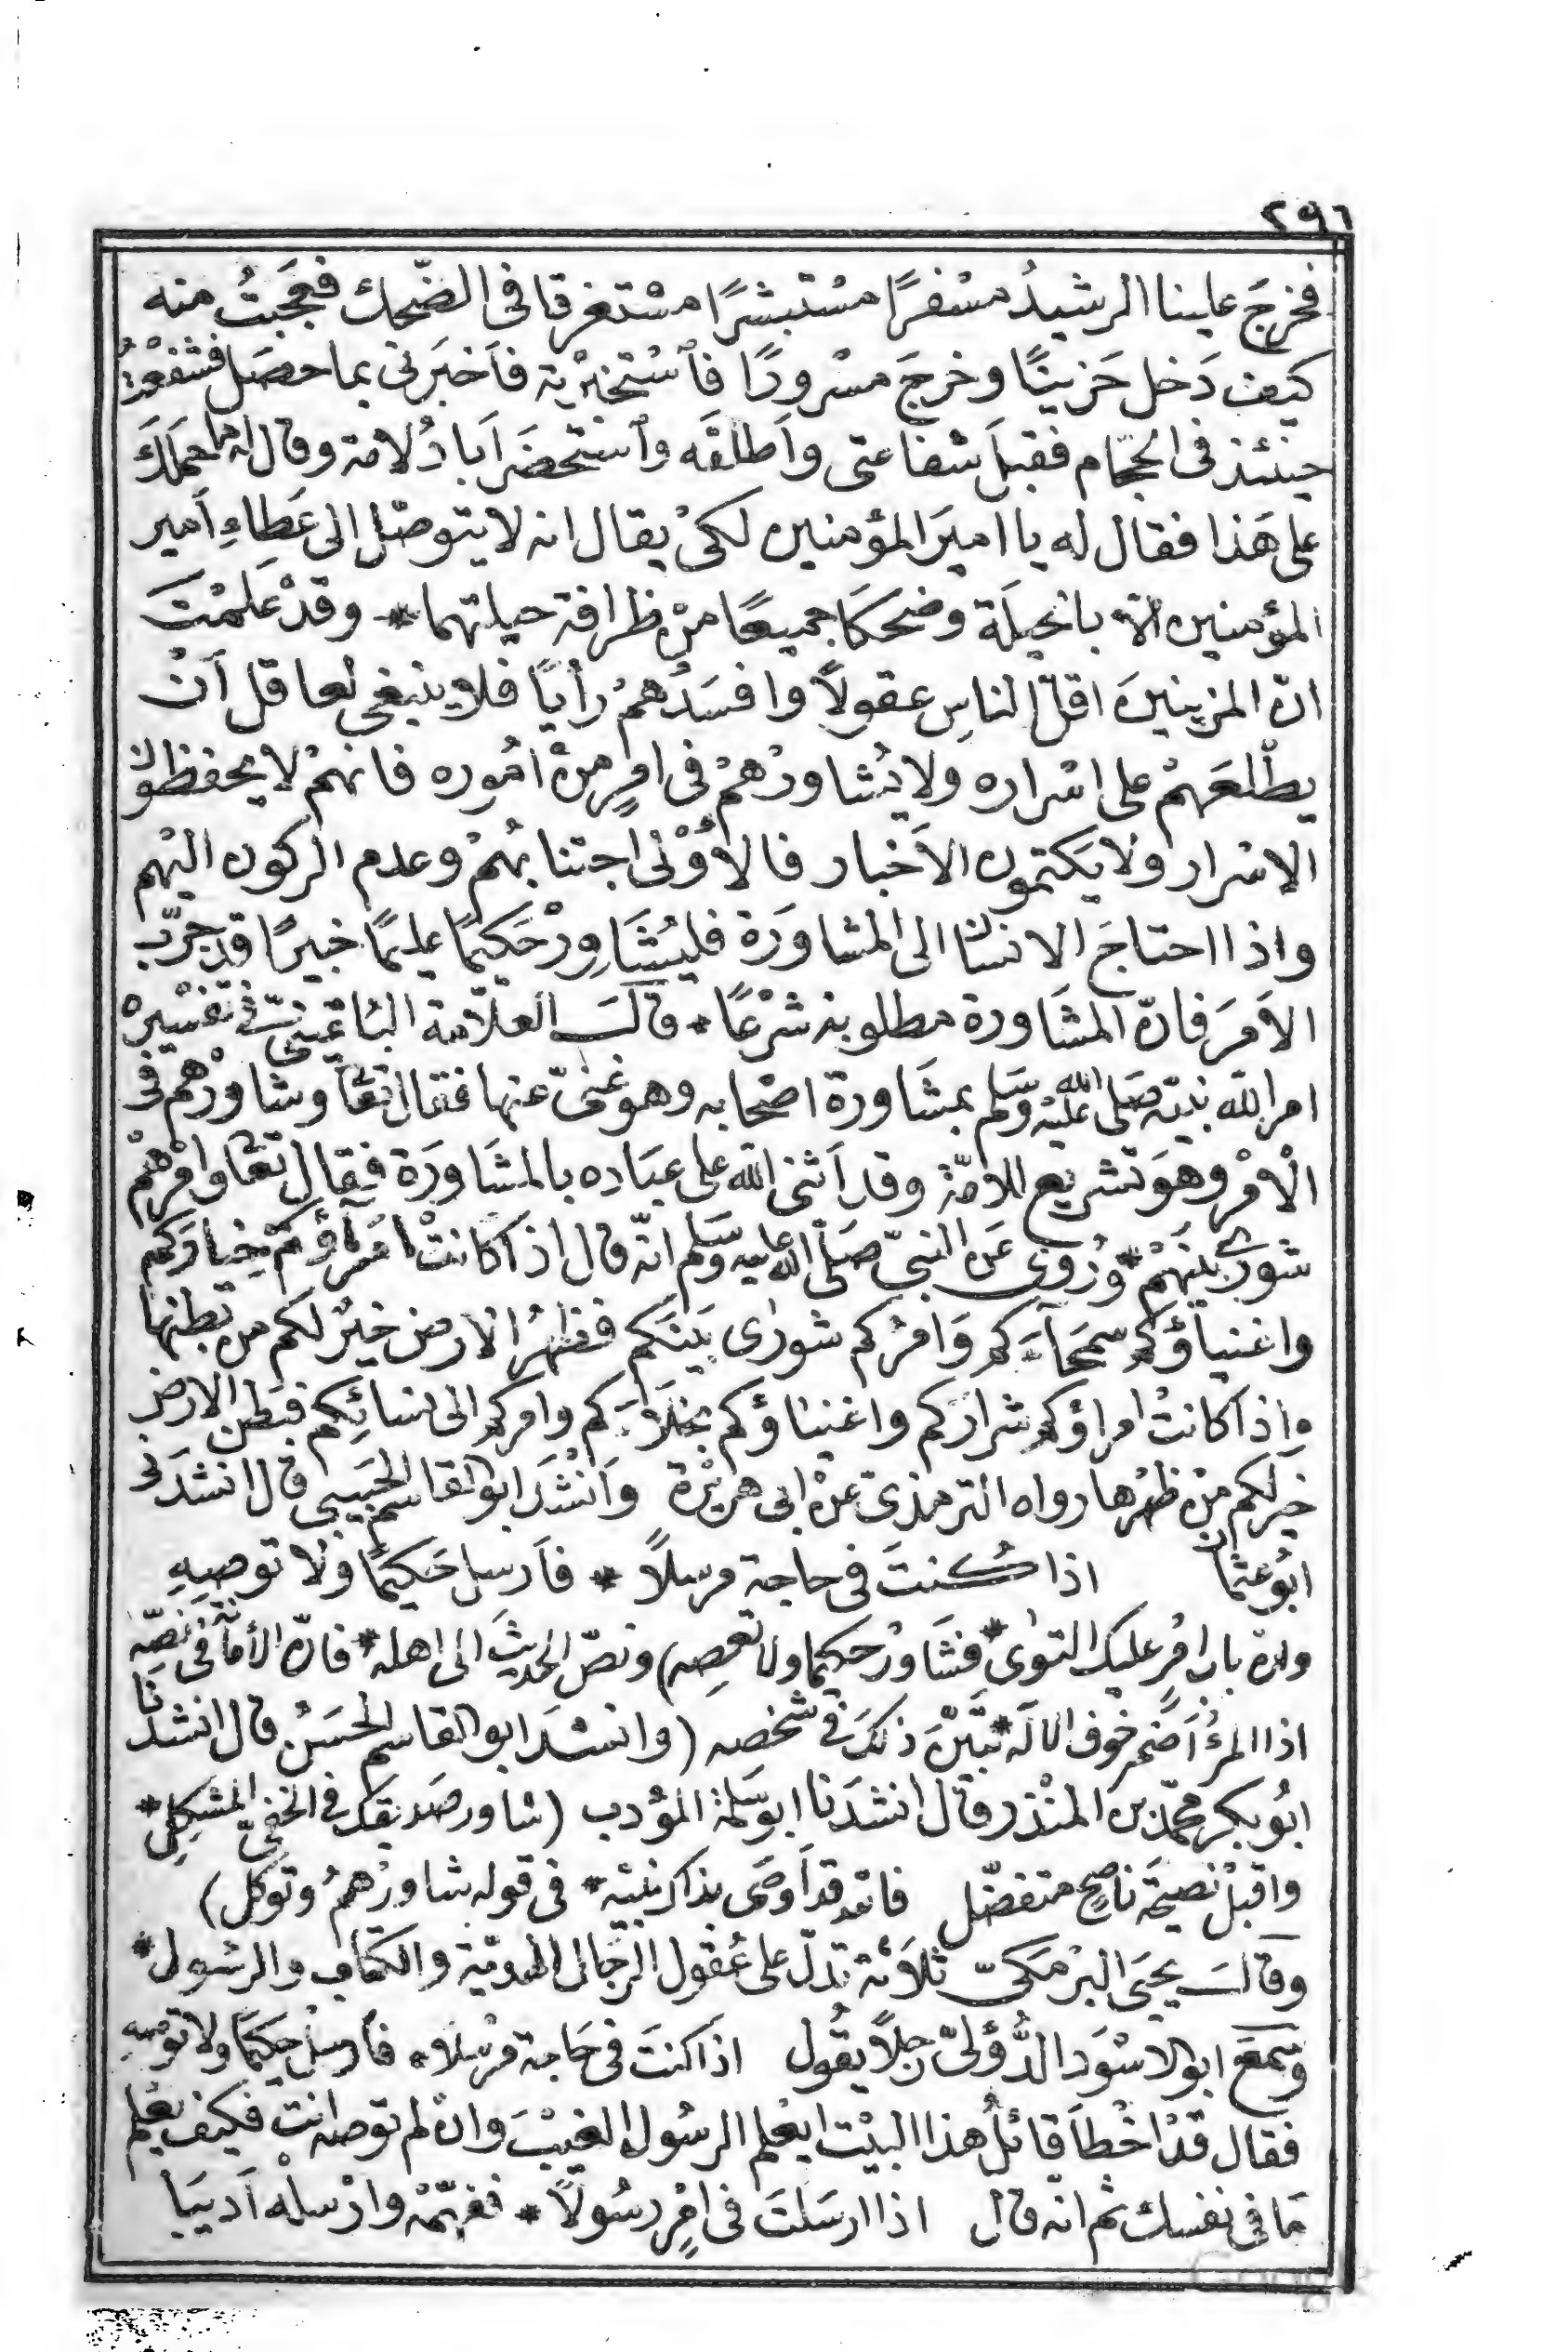 ٢٩٦
فخرجَ علينا الرشيدُ مسْفرًا مسْتبشرًا مسْتغرقا فى الضّحك فعجَبتُ منه
كيف دَخل حَزينًا وخرجَ مسْرورًا فٱسْتخبرْته فاَخبَرنى بما حصَل فشفعْتُ
حينئذ فى الحجّام فقبلَ شفاعتى واَطلقَه وٱسْتحْضرَ اَبا دُلامة وقال له ما حملَكَ
على هَذا فقال له يا اميرَ المؤمنين لكىْ يقال انه لا يتوصّل الى عَطاءِ أمير
المؤمنين الاّ بالحيلَة وضحكَا جميعًا منْ ظرافة حيلتهما * وقدْ عَلمْتَ
انّ المزينينَ اقلّ الناسِ عقولاً وافسَدُهمْ رأيًا فلا ينبغى لعاقل اَنْ
يطّلعَهمْ على اسْراره ولا يُشاورُهمْ فى امرٍ منْ امُوره فانهمْ لا يحفظون
الاسْرار ولا يَكتمون الاَخبار فالاَوْلى اجتنابُهمْ وعدم الركون اليْهم
واذا احتاجَ الانسان الى المشاوَرَة فليُشَاورْ حَكيمًا عليمًا خبيرًا قد جَرّبَ
الاَمرَ فانّ المشَاورة مطلوبة شرْعًا * قالَ العلاّمة البُلقينىّ فى تفسْيرهْ
امر الله نبيّه صَلى الله عليْه وسَلم بمشَاورة اصْحابه وهو غنىّ عنها فقال تعَا وشاورْهم فى
الاْمْر وهوَ تشريع للامّة وقد اَثنى الله على عبَاده بالمشَاورَة فقال تعَا وامْرهمْ
شورى بيْنَهمْ * ورُوىَ عَن النبىّ صَلّى الله عليه وسَلم انّه قال اذا كانتْ امَراؤكمْ خيارَكم
واغنياؤكم سمَحَاءَكم وَامرُكم شورٰى بَينَكم فظهْرُ الارض خيْرٌ لكم من بَطنها
واذا كانتْ امراؤكم شرارَكم واغنياؤكم بخلاَءَكم وامركم الى نسَائِكم فبَطن الارض
خيَر لكم منْ ظهْرها رواه الترمذى عنْ ابى هرَيْرة وَاَنشْدَ ابو القاسم الحَبيبى قال انشدَنى
ابوُ عثمانَ اذا كُنتَ فى حاجة مرسلاً * فاَرسل حَكيمًا ولا توصهِ
وانْ باب امْرٍ عليك التوٰى * فشَاورْ حكيما ولا تعصِه) ونصّ الحديثَ الى اهله * فانّ الأمانَة فى نَصّه
اذا المرْءُ اَضمَر خوْف الالَه * تبَيّنَ ذلكَ فى شخصه (وانشَدَ ابو القاسم الحسَنُ قال انشدنَا
ابوُ بكر محمّد بن المنْذر قال انشدَنا ابو سَلمة المؤدب (شاور صَديقك فى الخفىّ المشكِلِ *
واقبلْ نصيحَة ناصحٍ متفضّل فالله قد اَوصَى بذاكَ نبيّه * فى قوله شاورْهمُ وتوكل)
وقالَ يحيَى البرْمَكىّ ثلاَثة تدلّ على عُقول الرجال الهديّة والكتاب والرسُول *
وَسَمعَ ابو الاسْوَد الدُّؤلىّ رَجلاً يقُول اذا كنتَ فى حَاجة مرْسلا * فأرسلْ حَكيمًا ولا توصهِ
فقال قدْ اخْطاَ قائلُ هذا البيْت ايعْلم الرسُول الغيْبَ وانْ لم توصه انت فكيْف يعْلم
مَا فى نفسك ثم انه قال اذا ارسَلتَ فى امْرٍ رسُولاً * ففهّمْهُ وارْسلْه اَديبَا